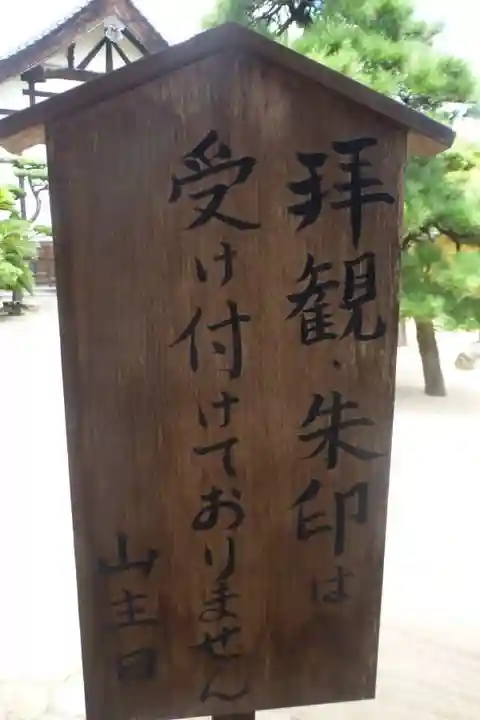 拝観、朱印は
受け付けておりません
山主曰